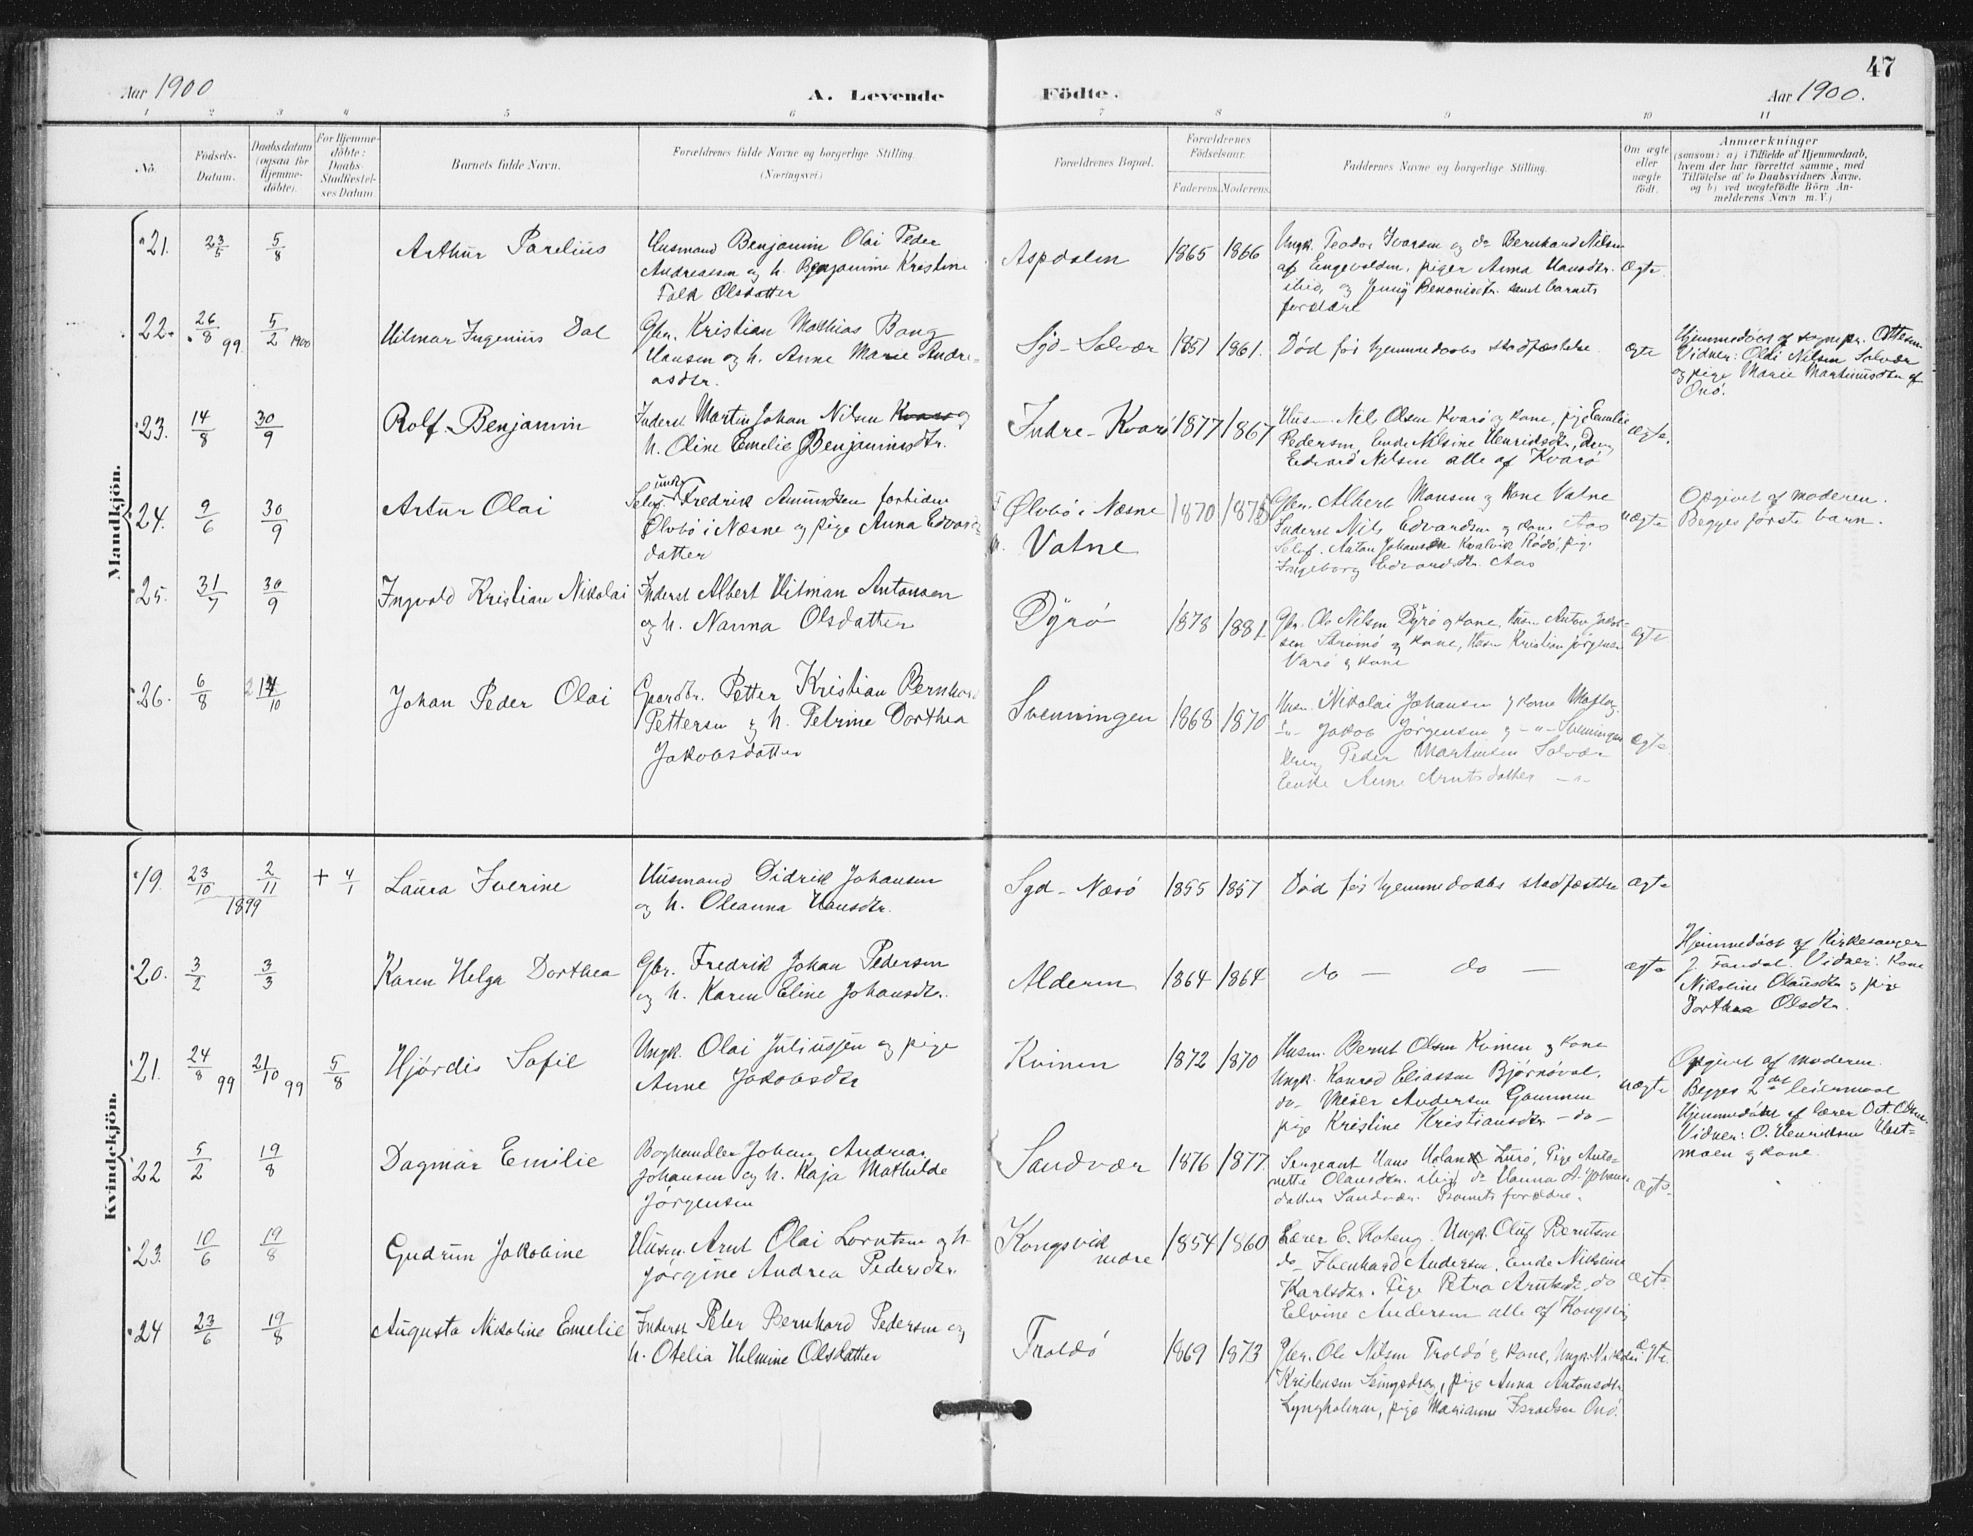 47
Aar 1900 A. Levende Födte. Aar 1900.
1 2 3 4 5 6 7 8 9 10 11
No. Födsels-Datum. Daabsdatum (ogsaa for Hjemme-döbte). For Hjemme-döbte: Daabs-Stadfæstel-ses Datum. Barnets fulde Navn. Forældrenes fulde Navne og borgerlige Stilling. (Næringsvei.) Forældrenes Bopæl. Forældrenes Födselsaar. Faderens. Moderens. Faddernes Navne og borgerlige Stilling. Om ægte eller uægte födt. Anmærkninger (saasom: a) i Tilfælde af Hjemmedaab, hvem der har forrettet samme, med Tilföielse af to Daabsvidners Navne, og b) ved uægtefödte Börn An-melderens Navn m. V.)
Mandkjön.
21. 23/5 5/8 Arthur Parelius Husmand Benjamin Olai Peder Aspdalen 1865 1866 Ungk. Teodor Ivarsen og do Bernhard Nilsen
Andreassen og h. Benjamine Kristine af Engevolden, piger Anna Hansdtr. Ægte
Falk Olsdatter ibid. og Jenny Benonisdtr. samt barnets
forældre
22. 26/8 99. 5/2 1900 Hilmar Ingenius Dal Gbr. Kristian Mathias Bang Syd-Solvær 1851 1861. Død før hjemmedaabs stadfæstelse ægte Hjemmedøbt af sognepr. Ottesen
Hansen og h. Anne Marie Andre- Vidner: Oldi Nilsen Solvær
asdtr. og pige Marie Martinusdtr af
Onö.
23. 14/8 30/9 Rolf Benjamin Inderst Martin Johan Nilsen Kvarø og Indre-Kvarø 1877 1867 Hus- Nils Olsen Kvarø og kone, pige Emilie ægte.
h. Oline Emelie Benjaminsdtr. Pedersen, Enke Nilsine Henriksdtr, Dreng
Edvard Nilsen alle af Kvarø
24. 9/6 30/9 Artur Olai Selvf. ungk Fredrik Amundsen fortiden F Ølvbö i Næsne 1870 1875 Gbr. Albert Monsen og kone Vatne uægte Opgivet af moderen.
Ølvbö i Næsne og pige Anna Edvards- m. Vatne Inderst Nils Edvardsen og kone Aas Begges første barn.
datter Selvf. Anton Johansen Kvalvik Rødø, pige
Ingeborg Edvardsdtr. Aas
25. 31/7 30/9 Ingvald Kristian Nikolai Inderst Albert Hilman Antonsen Dyrø 1878 1881 Gbr. Ole Nilsen Dyrø og kone, Hus- Anton Jakob- ægte
og h. Nanna Olsdatter sen Strømø og kone, Husm Kristian Jørgensen
Varø og kone
26. 6/8 14/10 Johan Peder Olai Gaardbr. Petter Kristian Bernhard Svenningen 1868 1870 Husm. Nikolai Johansen og kone
Pettersen og h. Petrine Dorthea -"- Jakob Jørgensen og -"- Svenningen ægte
Jakobsdatter dreng Peder Martinsen Solvær
Enke Anne Arntsdatter -"-
Kvindekjön.
19. 23/10 2/11 1899 + 4/1 Laura Iverine Husmand Didrik Johansen Syd-Næsö 1855 1857 Død før hjemmedaabs stadfæstelse ægte
og h. Oleanna Hansdtr.
20. 3/2 3/3 Karen Helga Dorthea Gbr. Fredrik Johan Pedersen Alderen 1864 1864 do — do — ægte Hjemmedøbt af Kirkesanger
og h. Karen Eline Johansdtr. J. Vidner: Kone
Nikoline Olausdtr og pige
Dorthea Olsdtr.
21. 24/8 99 21/10 99 5/8 Hjördis Sofie Ungk. Olai Juliussen og pige Kvinen 1872 1870 Husm. Bernt Olsen Kvinen og kone uægte Opgivet af moderen.
Anne Jakobsdtr Ungk. Konrad Eliassen Bjørnøval. Begges 2det leiermaal
do- Meier Andersen Gammen Hjemmedøbt af lærer Oct. Olsen
pige Kristine Kristiansdtr -do- Vidner: O. Henriksen Hest-
moen og kone.
22 5/2 19/8 Dagmar Emilie Boghandler Johan Andreas Sandvær 1876 1877. Sergeant Hans Lurø, Pige Anto-
Johansen og h. Kaja Mathilde nette Olausdtr. ibid. do Hanna A. Johans- ægte
Jørgensen datter Sandvær. Barnets forældre.
23. 10/6 19/8 Gudrun Jakobine Husm. Arnt Olai Lorntsen og h. Kongsvik indre 1854 1860 Lærer E. Ungk. Oluf Berntsen
Jørgine Andrea Pedersdtr. do- Ebenhard Andersen, Enke Nikoline ægte
Karlsdtr. Pige Petra Arntsdt, do
Elvine Andersen alle af Kongsvig
24 23/6 19/8 Augusta Nikoline Emelie Inderst Peter Bernhard Pedersen og Troldö 1869 1873 Gbr. Ole Nilsen Troldö og kone, Ungk. Nikolai ægte.
h. Otelia Helmine Olsdatter Kristensen pige Anna Antonsdtr
Lyngholmen, pige Marianne Israelsen Onö.